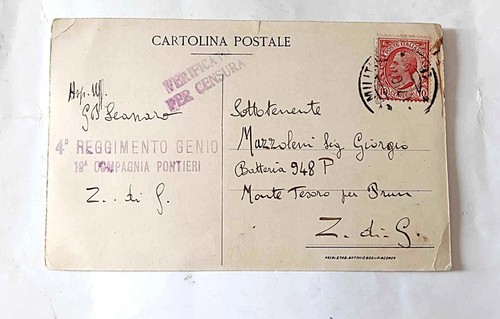 CARTOLINA POSTALE
VERIFICA
PER CENSURA
Asp. Uff.
4° REGGIMENTO GENIO
19ª COMPAGNIA PONTIERI
Z. di G.
POSTE ITALIANE
10 10
MILIT
Sottotenente
Mazzoleni Sig. Giorgio
Batteria 948 P
Monte Tesoro per Prun
Z. di G.